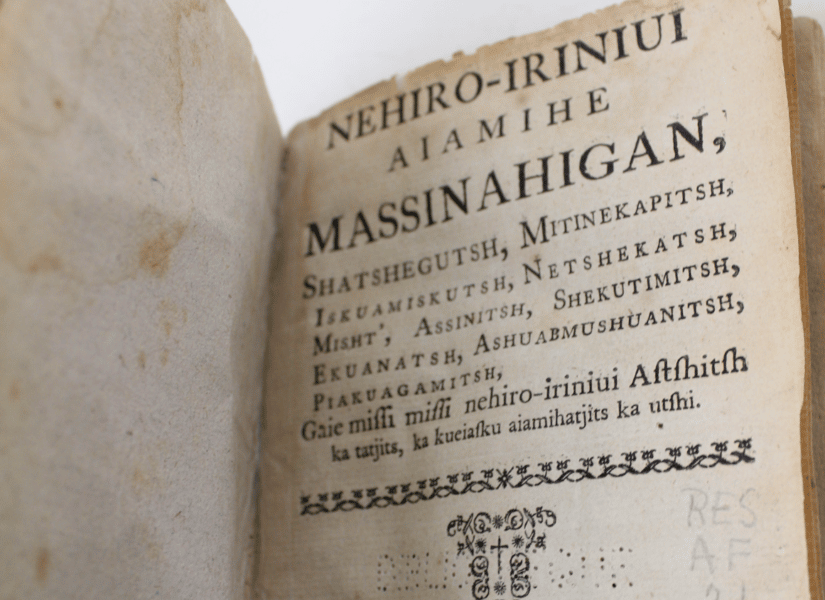 NEHIRO-IRINIUI
AIAMIHE
MASSINAHIGAN,
SHATSHEGUTSH, MITINEKAPITSH,
ISKUAMISKUTSH, NETSHEKATSH,
MISHT', ASSINITSH, SHEKUTIMITSH,
EKUANATSH, ASHUABMUSHUANITSH,
PIAKUAGAMITSH,
Gaie miſſi miſſi nehiro-iriniui Aſtſhitſh
ka tatjits, ka kueiaſku aiamihatjits ka utſhi.
RES
AF